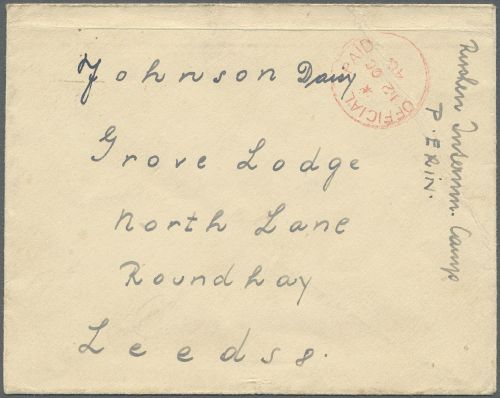 Johnson Davy
Grove Lodge
North Lane
Roundhay
Leeds 8.
OFFICIAL PAID
12 OC
40
Rushen Internm. Camp
P. ERIN.